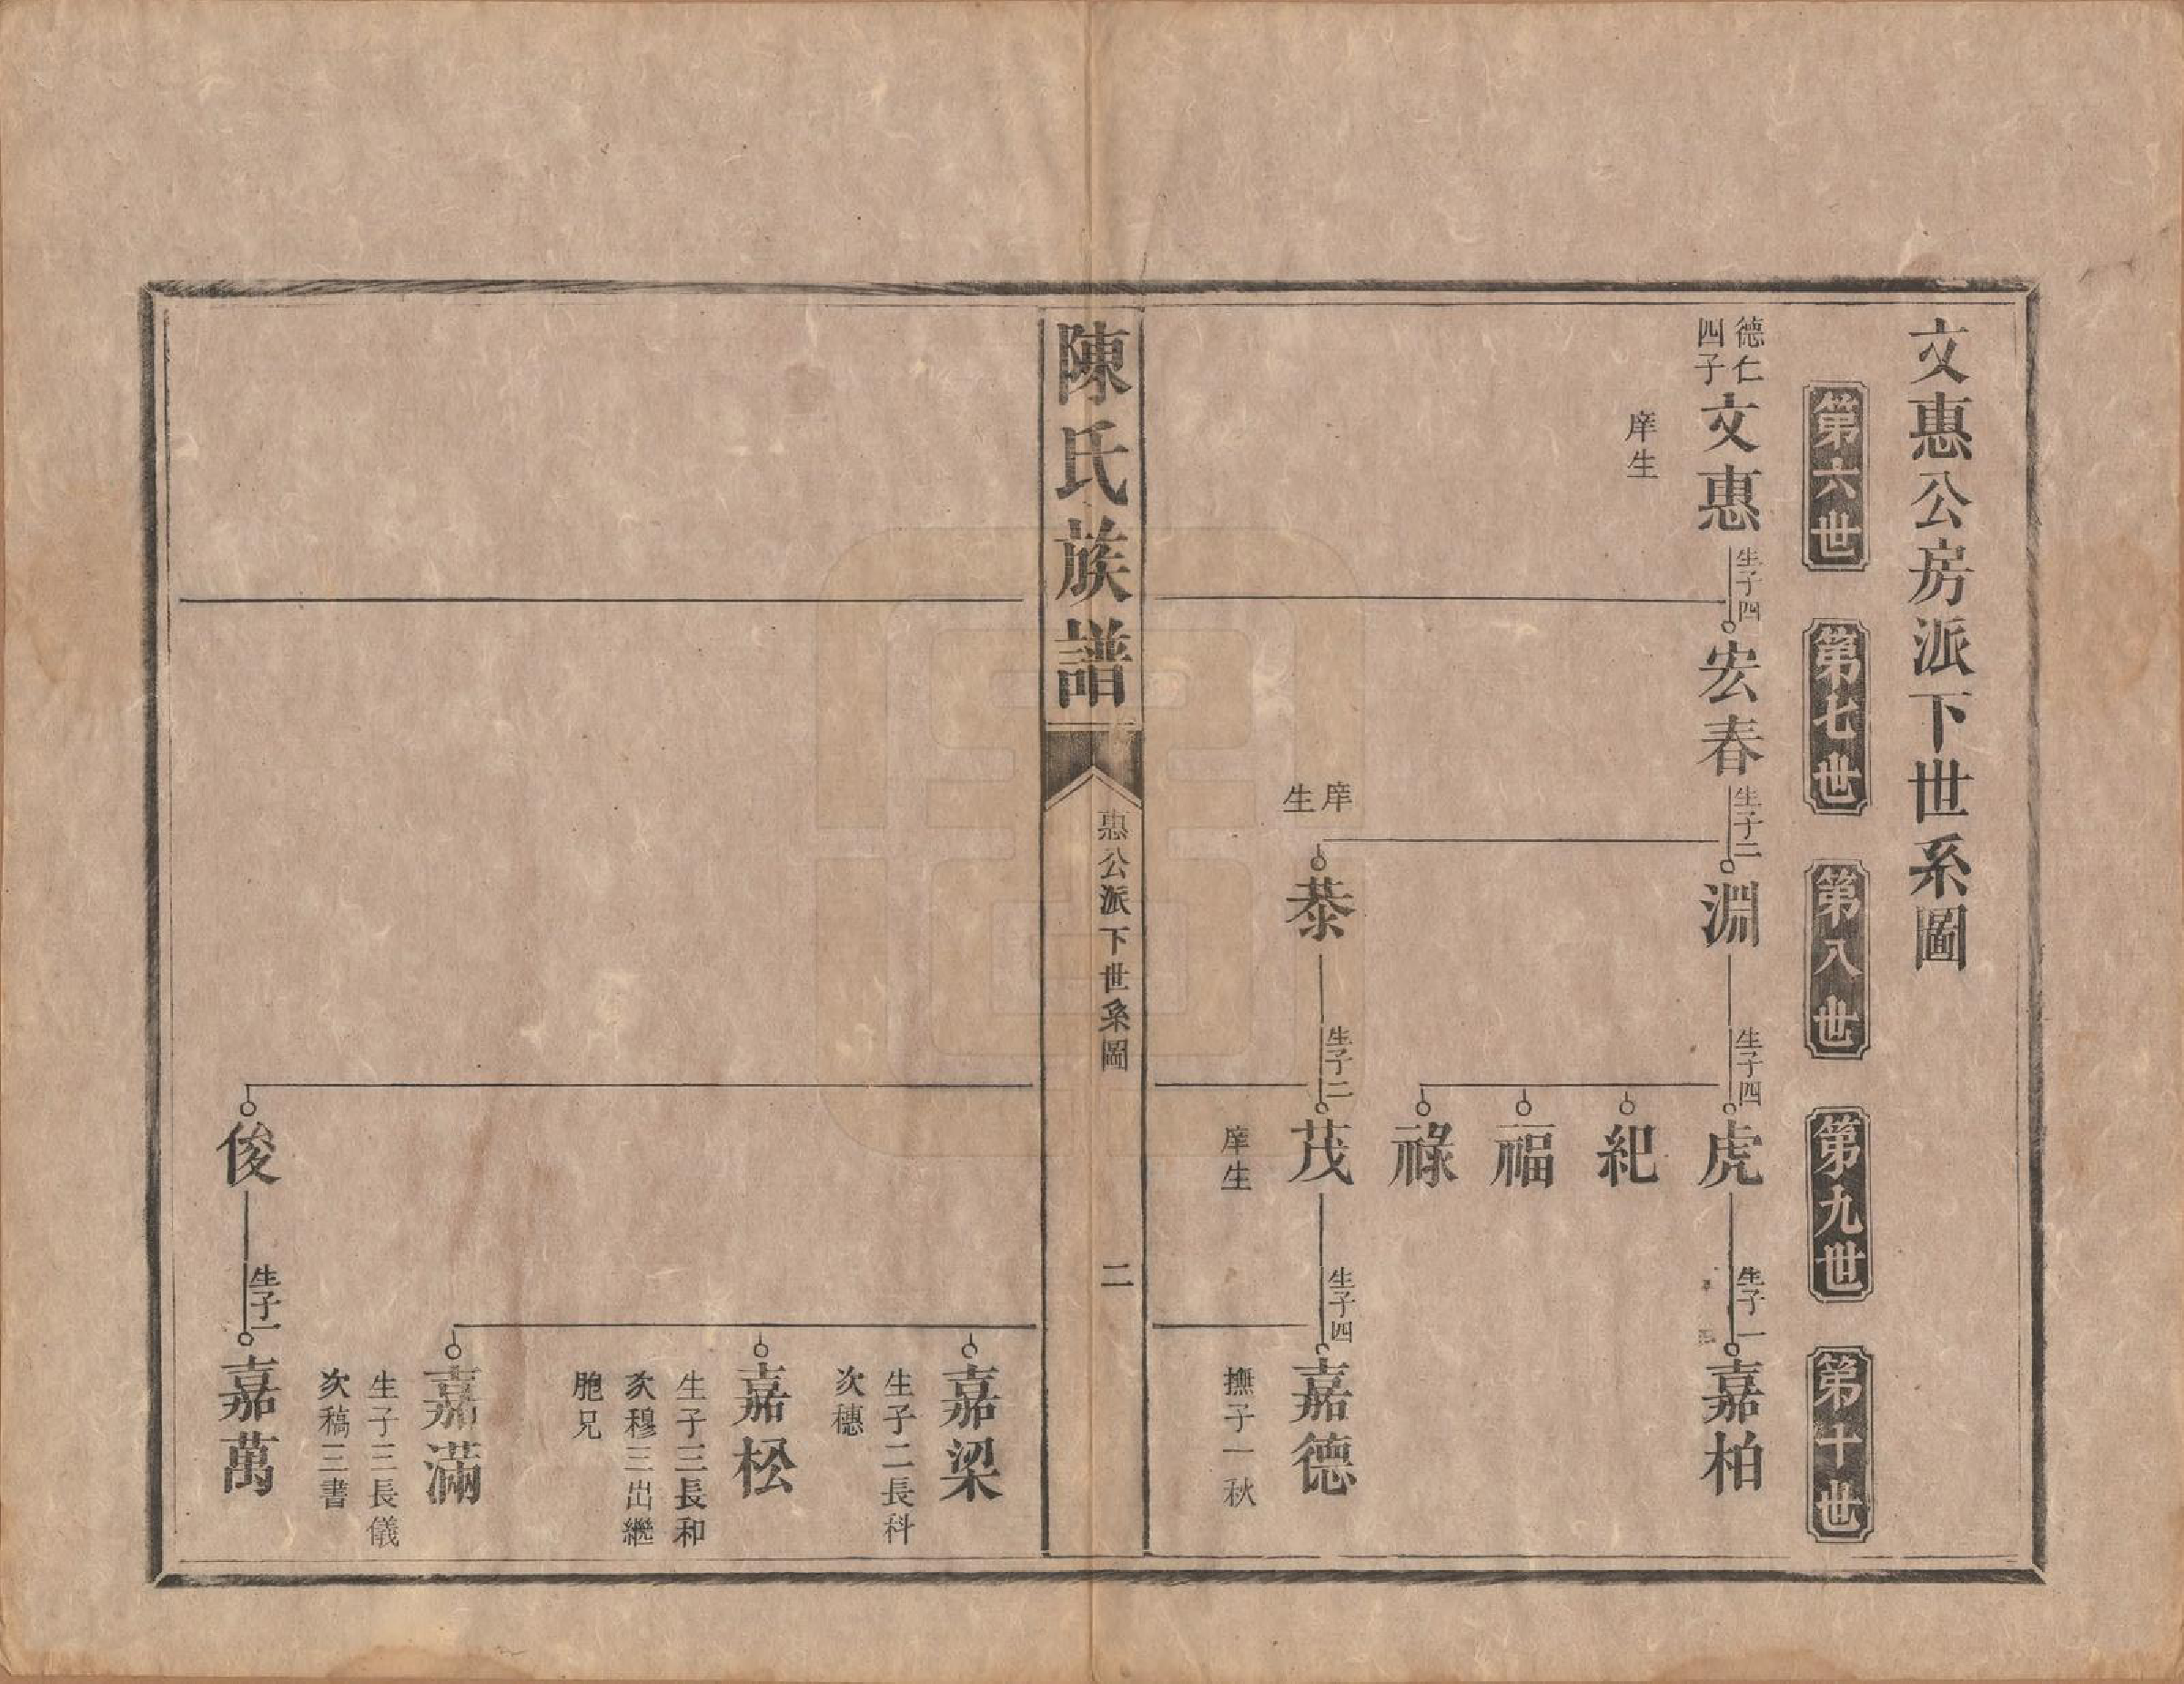 文惠公房派下世系圖
第六世
第七世
第八世
第九世
第十世
德仁
四子
文惠
庠生
生子四
宏春
生子二
淵
生子四
虎
生子一
嘉柏
紀
福
祿
庠
生
恭
生子二
茂
庠生
生子四
嘉德
撫子一秋
陳氏族譜
惠公派下世系圖
二
嘉梁
生子二長科
次穗
嘉松
生子三長和
次穆三出繼
胞兄
嘉滿
生子三長儀
次稿三書
俊
生子一
嘉萬